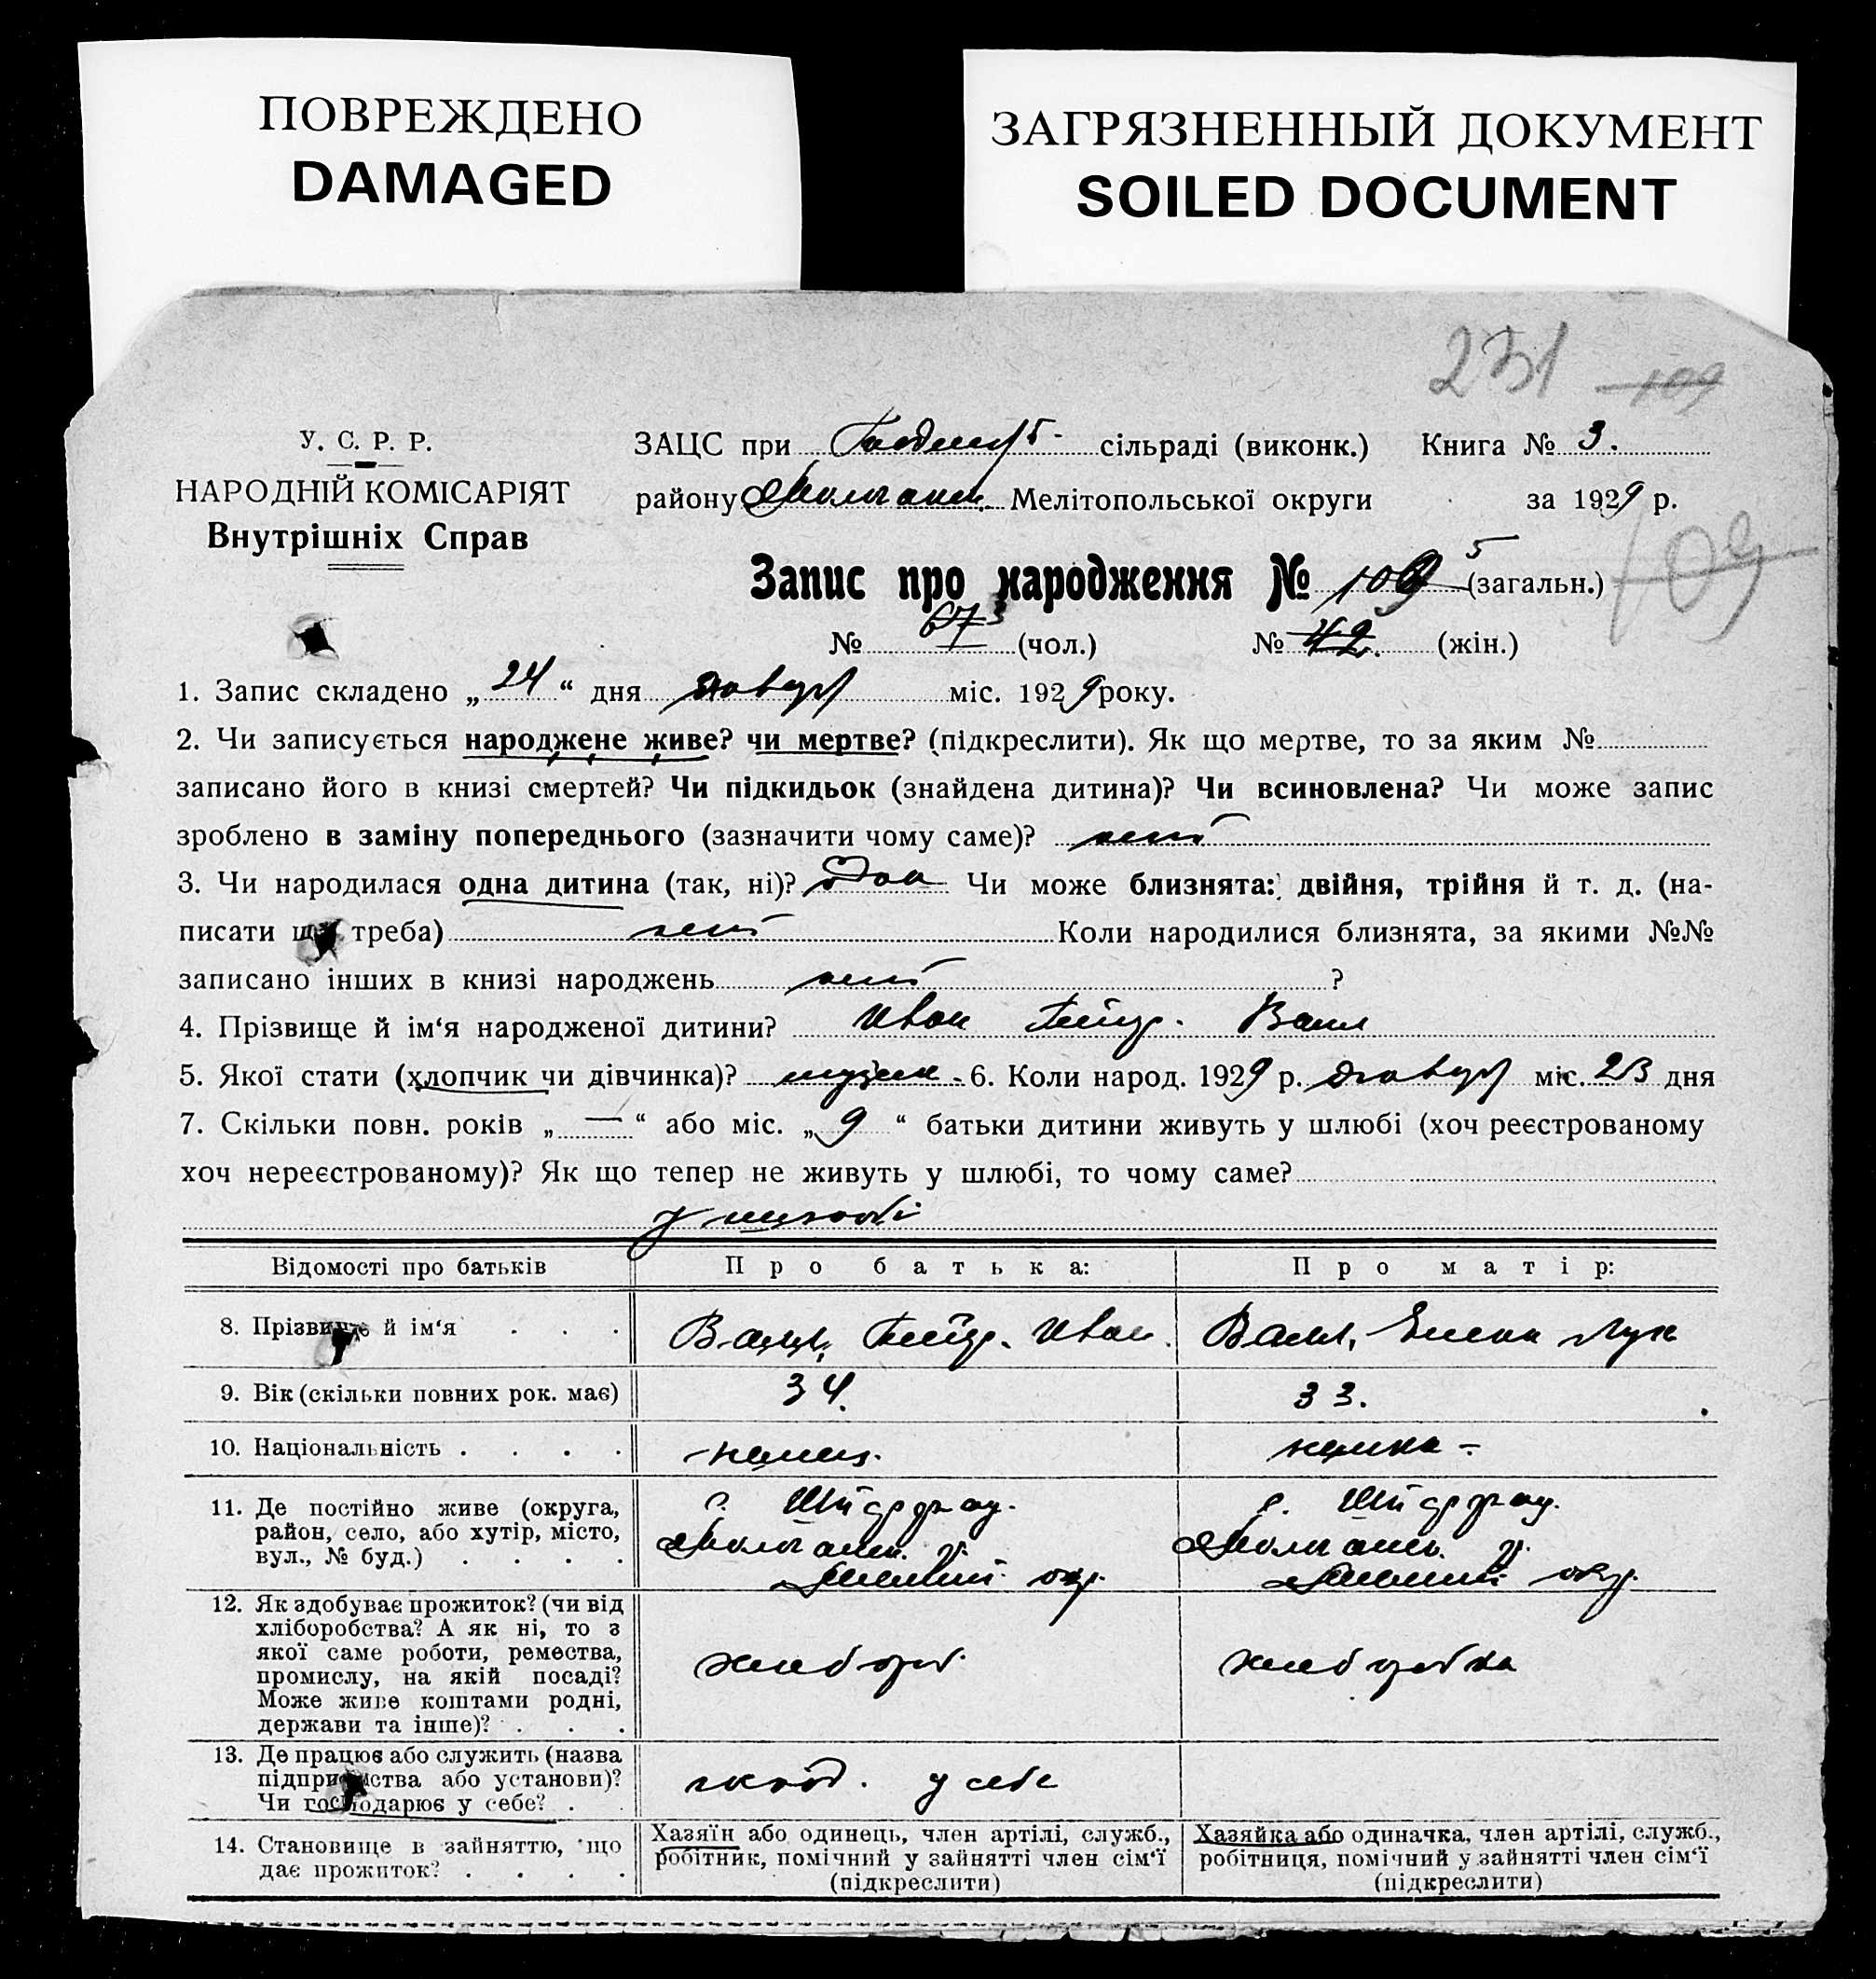 ПОВРЕЖДЕНО
DAMAGED
ЗАГРЯЗНЕННЫЙ ДОКУМЕНТ
SOILED DOCUMENT
231 109
У. С. Р. Р.
НАРОДНІЙ КОМІСАРІЯТ
Внутрішніх Справ
ЗАЦС при сільраді (виконк.) Книга № 3.
району Молочанск. Мелітопольської округи за 1929 р.
109
Запис про народження № 109 5 (загальн.)
№ 67 3 (чол.) № 42. (жін.)
1. Запис складено „ 24 “ дня января міс. 1929 року.
2. Чи записується народжене живе? чи мертве? (підкреслити). Як що мертве, то за яким №
записано його в книзі смертей? Чи підкидьок (знайдена дитина)? Чи всиновлена? Чи може запис
зроблено в заміну попереднього (зазначити чому саме)? нет
3. Чи народилася одна дитина (так, ні)? Чи може близнята: двійня, трійня й т. д. (на-
писати що треба) нет Коли народилися близнята, за якими №№
записано інших в книзі народжень нет ?
4. Прізвище й ім‘я народженої дитини? Иван Петр. Валл
5. Якої стати (хлопчик чи дівчинка)? мужск. 6. Коли народ. 1929 р. января міс. 23 дня
7. Скільки повн. років „ — “ або міс. „ 9 “ батьки дитини живуть у шлюбі (хоч реєстрованому
хоч нереєстрованому)? Як що тепер не живуть у шлюбі, то чому саме?
у шлюбі
Відомості про батьків Про батька: Про матір:
8. Прізвище й ім‘я . . . Валл, Петр. Иван. Валл, Елена
9. Вік (скільки повних рок. має) 34. 33.
10. Національність . . . . немец. немка -
11. Де постійно живе (округа, с. с.
район, село, або хутір, місто, Молочанск. р. Молочанск. р.
вул., № буд.) . . . . Мелит. окр. Мелит. окр.
12. Як здобуває прожиток? (чи від
хліборобства? А як ні, то з
якої саме роботи, ремества, хлебороб. хлеборобка
промислу, на якій посаді?
Може живе коштами родні,
держави та інше)? . . .
13. Де працює або служить (назва
підприємства або установи)? у себе
Чи господарює у себе? . .
14. Становище в зайняттю, що дає прожиток? . . . .
Хазяїн або одинець, член артілі, служб.,
робітник, помічний у зайнятті член сім‘ї
(підкреслити)
Хазяйка або одиначка, член артілі, служб.,
робітниця, помічний у зайнятті член сім‘ї
(підкреслити)